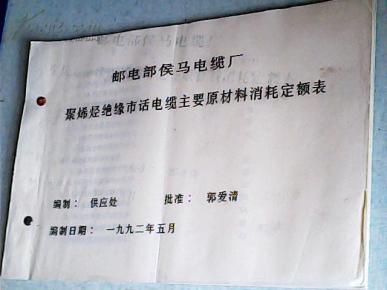 邮电部侯马电缆厂
聚烯烃绝缘市话电缆主要原材料消耗定额表
编制： 供应处 批准： 郭爱清
编制日期： 一九九二年五月